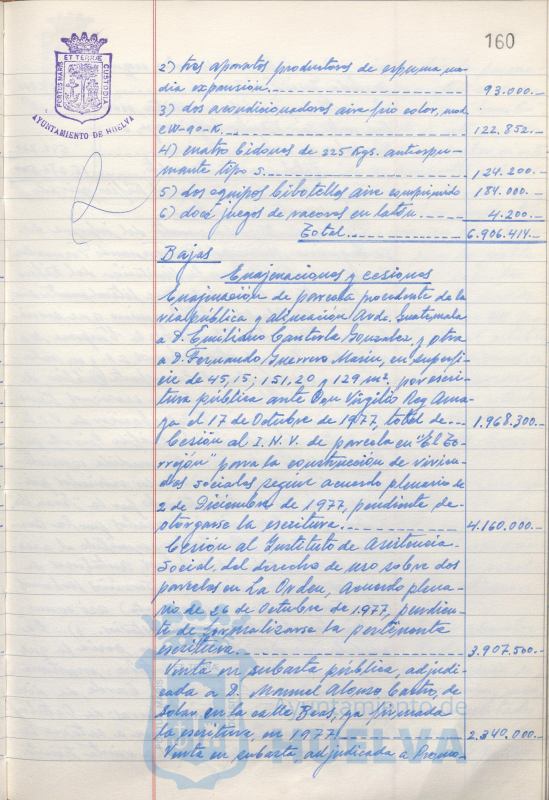 160
PORTUS MARIS ET TERRÆ CUSTODIA
AYUNTAMIENTO DE HUELVA
2) tres aparatos productores de espuma me-
dia expansión. 93.000.-
3) dos acondicionadores aire frio calor, mod.
CW-90-K. 122.852.-
4) cuatro bidones de 225 Kgs. antiespu-
mante tipo S. 124.200.-
5) dos equipos bibotellas aire comprimido 184.000.-
6) doce juegos de racores en latón. 4.200.-
Total. 6.906.414.-
Bajas
Enajenaciones y cesiones
Enajenación de parcela procedente de la
vía pública y alineación Avda. Guatemala
a D. Emiliano Cantorla Gonzalez y otra
a D. Fernando Guerrero Marin, en superfi-
cie de 45,15; 151,20 y 129 m². por escri-
tura pública ante Don Virgilio Rey Ama-
ya el 17 de Octubre de 1977, total de 1.968.300.-
Cesión al I.N.V. de parcela en "El To-
rrejón" para la construcción de vivien-
das sociales según acuerdo plenario de
2 de Diciembre de 1977, pendiente de
otorgarse la escritura. 4.160.000.-
Cesión al Instituto de Asistencia
Social, del derecho de uso sobre dos
parcelas en La Orden, Acuerdo plena-
rio de 26 de Octubre de 1977, pendien-
te de formalizarse la pertinente
escritura. 3.907.500.-
Venta en subasta pública, adjudi-
cada a D. Manuel Alonso Castro, de
solar en la calle Beas, ya firmada
la escritura, en 1977 2.340.000.-
Venta en subasta, adjudicada a Promo-
Ayuntamiento de
HUELVA